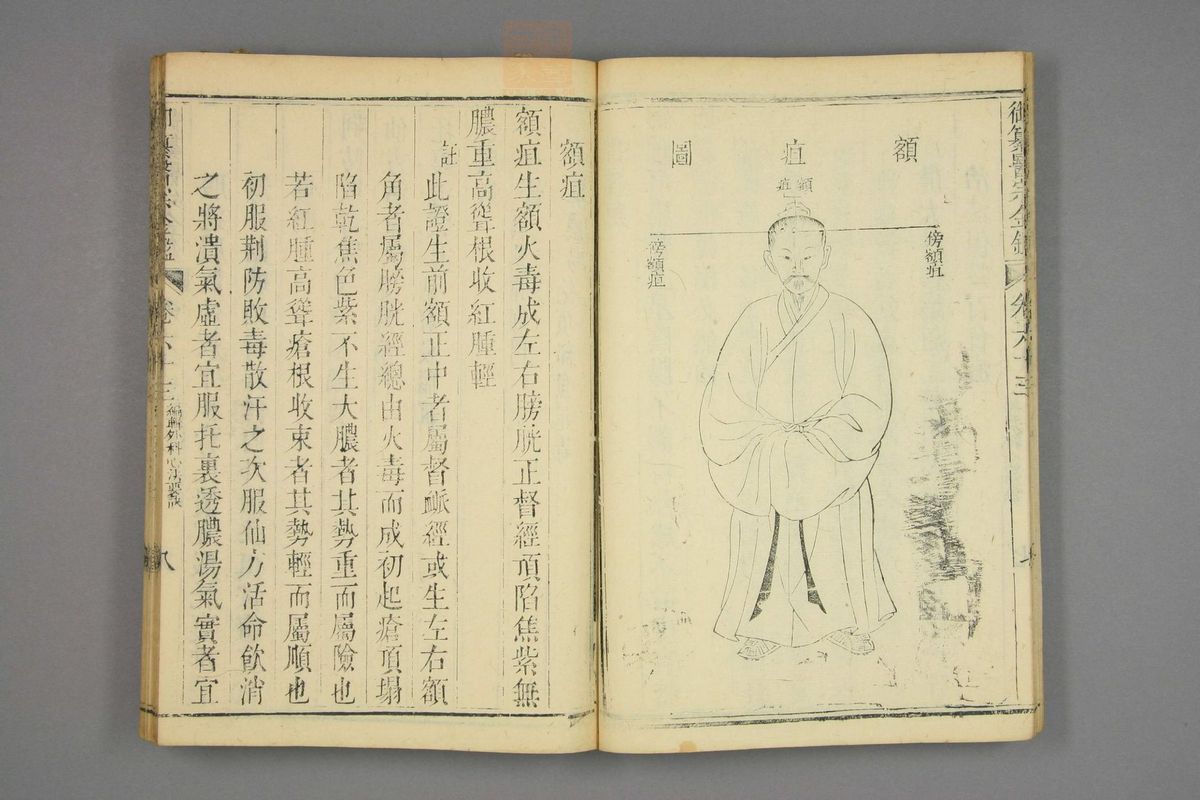 御纂醫宗金鑑
卷六十三
額疽圖
額疽
傍額疽
傍額疽
額疽
額疽生額火毒成左右膀胱正督經頂陷焦紫無
膿重高聳根收紅腫輕
註此證生前額正中者屬督脈經或生左右額
角者屬膀胱經總由火毒而成初起瘡頂塌
陷乾焦色紫不生大膿者其勢重而屬險也
若紅腫高聳瘡根收束者其勢輕而屬順也
初服荆防敗毒散汗之次服仙方活命飮消
之將潰氣虛者宜服托裏透膿湯氣實者宜
卷六十三 編輯外科心法要訣
八